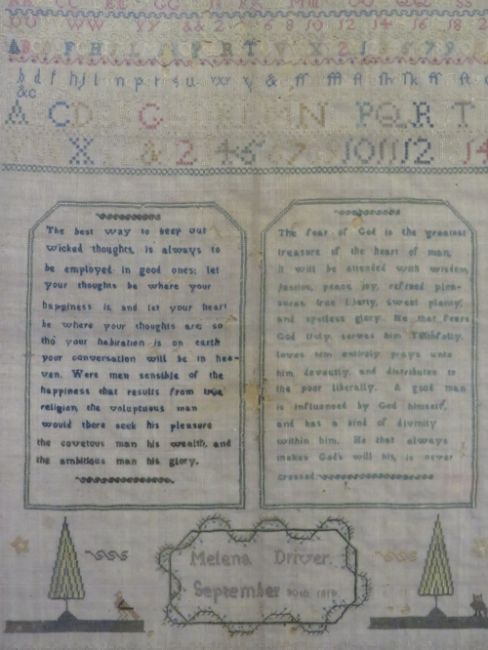 CC EE GG II KK MM OO QQ SS
UU WW YY && 2 4 6 8 10 12 14 16 18 2
A B F H L P R T V X 2 5 7 9
b d f h j l n p r s u w y & ff
&c
A C D G N P Q R T
X & 2 4 5 7 9 10 11 12 14
The best way to keep out
wicked thoughts, is always to
be employed in good ones; let
your thoughts be where your
happiness is, and let your heart
be where your thoughts are; so
tho' your habitation is on earth
your conversation will be in hea-
ven. Were men sensible of the
happiness that results from true
religion, the voluptuous man
would there seek his pleasure
the covetous man his wealth, and
the ambitious man his glory.
The fear of God is the greatest
treasure of the heart of man,
it will be attended with wisdom,
justice, peace, joy, refined plea-
sures, true liberty, sweet plenty,
and spotless glory. He that fears
God truly, serves him faithfully,
loves him entirely, prays unto
him devoutly, and distributes to
the poor liberally. A good man
is influenced by God himself,
and has a kind of divinity
within him. He that always
makes God's will his, is never
crossed.
Melena Driver.
September